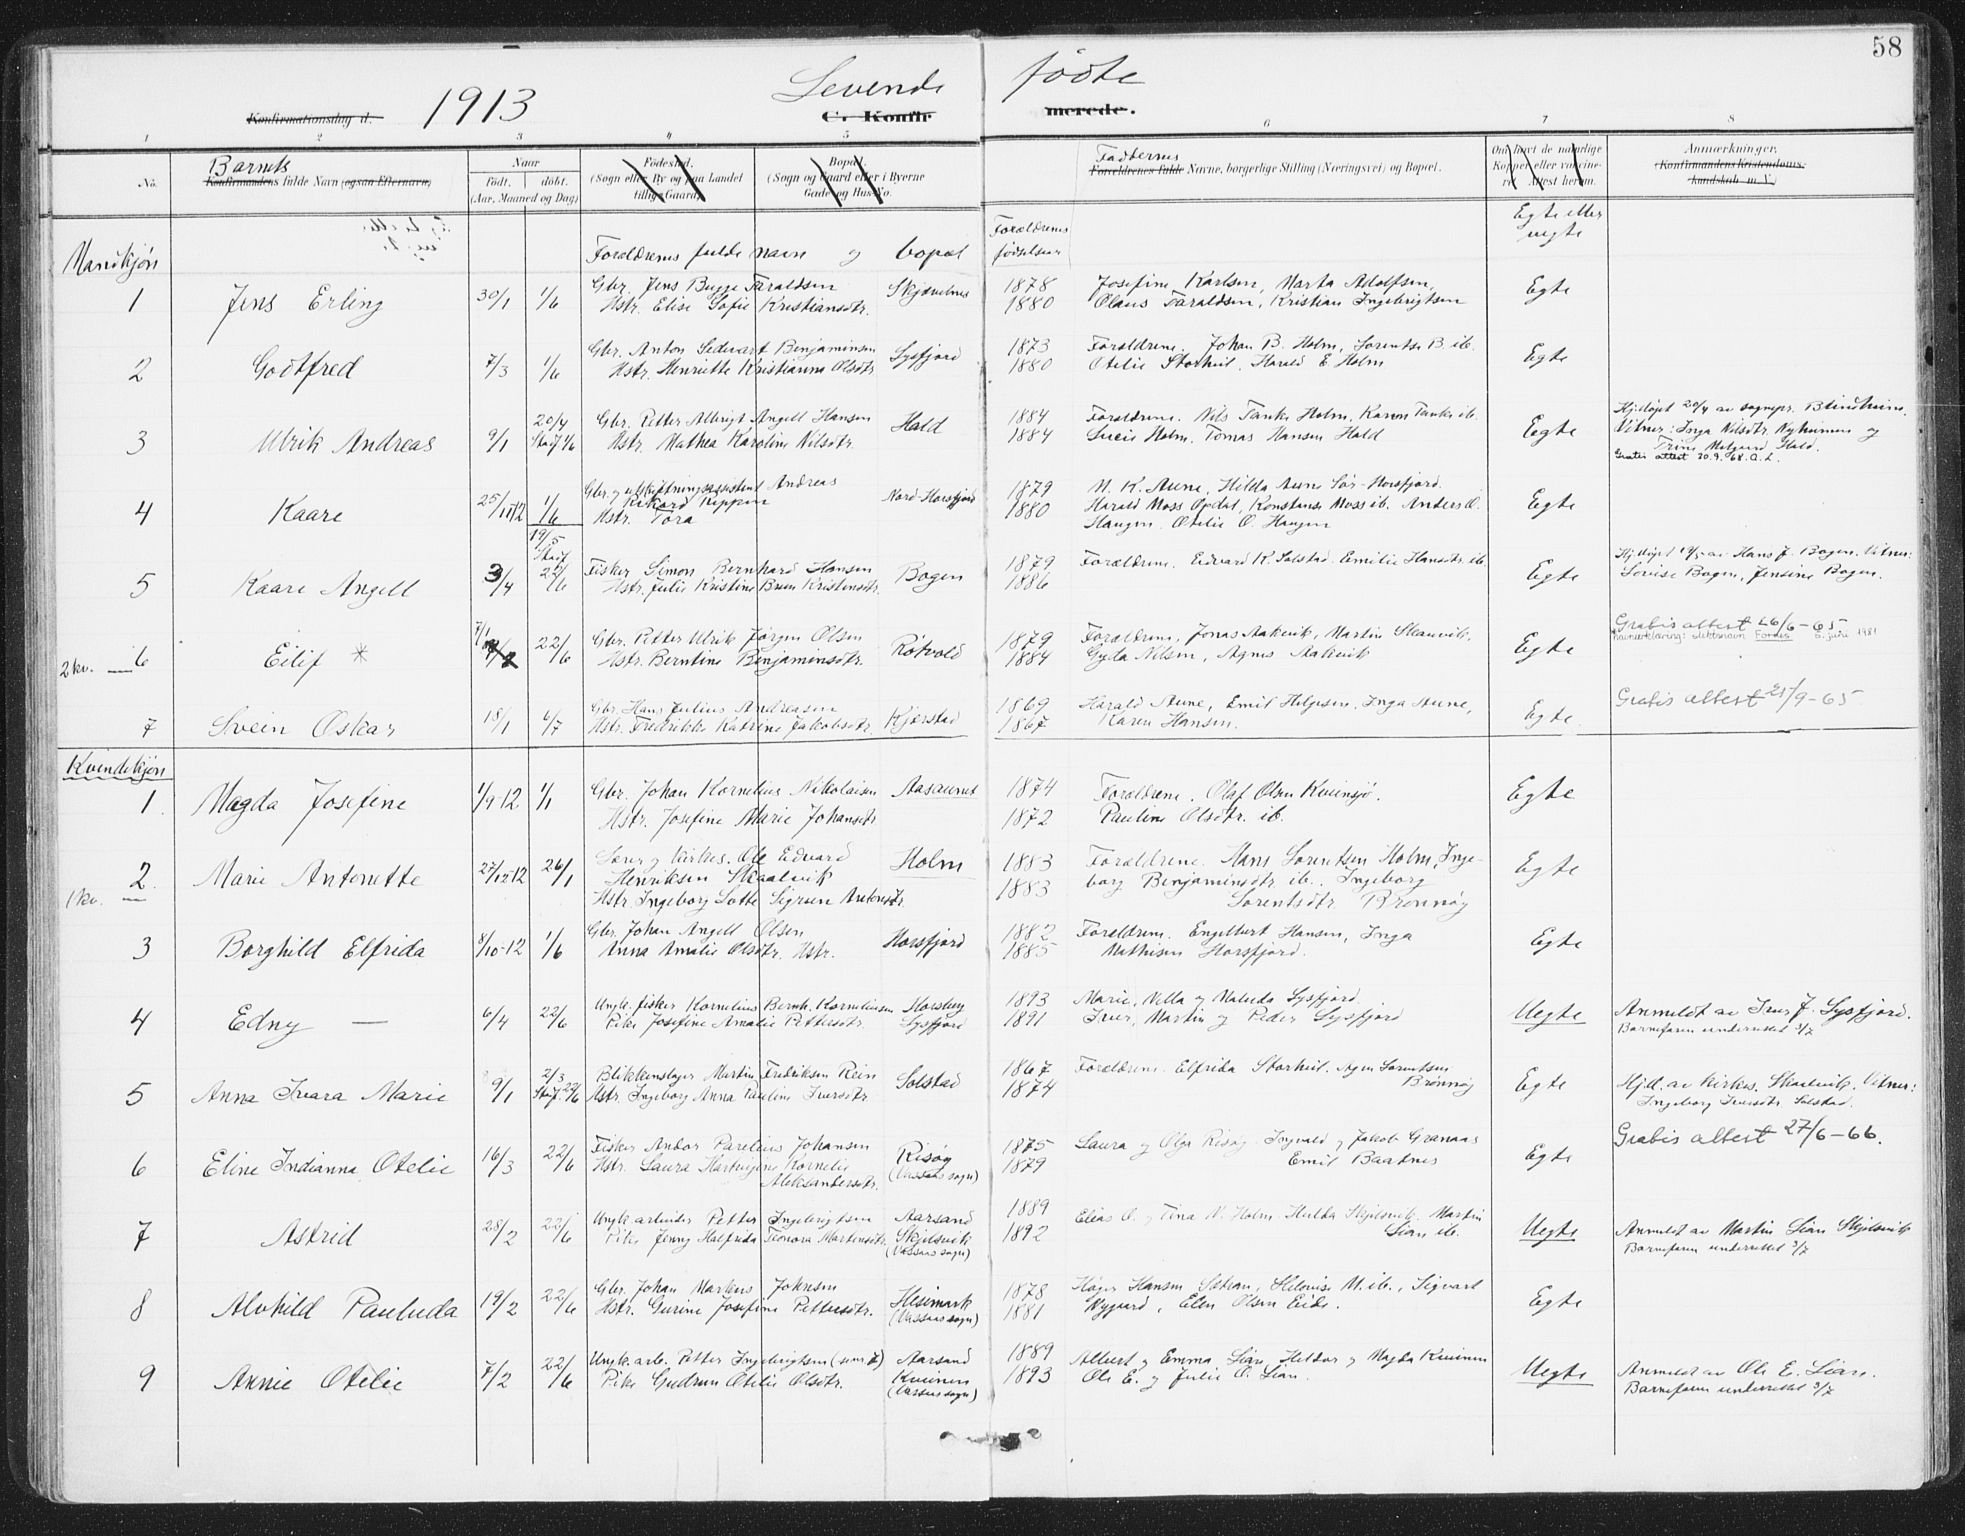 58
1913 Levende fødte
Konfirmationsdag d. C. Konfir merede.
1 2 3 4 5 6 7 8
Barnets
No. Konfirmandens fulde Navn (ogsaa Efternavn)
Naar
Født. døbt.
(Aar, Maaned og Dag)
Fødested.
(Sogn eller By og paa Landet
tillige Gaard)
Bopæl.
(Sogn og Gaard eller i Byerne
Gade og Hus-No.
Faddernes
Forældrenes fulde Navne, borgerlige Stilling (Næringsvei) og Bopæl.
Om havt de naturlige
Kopper eller vaccine-
ret Attest herom.
Anmærkninger.
(Konfirmandens Kristendoms-
kundskab m. V.)
Egte eller
uegte
Forældrenes
fødselsaar
Forældrenes fulde navn og bopæl
Mandkjøn
1 Jens Erling 30/1 1/6 Gbr. Jens Bugge Faraldsen Skjævelnes 1878 Josefine Karlsen, Marta Adolfsen, Egte
Hstr. Elise Sofie Kristiansdtr. 1880 Olaus Faraldsen, Kristian Ingebrigtsen
2 Godtfred 7/3 1/6 Gbr. Anton Sedevart Benjaminsen Lysfjord 1873 Forældrene. Johan B. Holm, Sorentse B. ib. Egte
Hstr. Henriette Kristianna Olsdtr 1880 Otelie Storheil. Harald E. Holm
3 Ulrik Andreas 9/1 20/4 Gbr. Petter Albrigt Angell Hansen Hald 1884 Forældrene. Nils Tanke Holm, Karen Tanke ib. Egte Hj.døpt 20/4 av sognepr. Blindheim.
Stadf 1/6 Hstr. Mathea Karoline Nilsdtr. 1884 Lucie Holm. Tomas Hansen Hald Vitner: Inga Nilsdtr. Nyheimen og
Trine Melgaard Hald.
Gratis attest 20.9.68. O.L.
4 Kaare 25/11 12 1/6 Gbr. og utskiftningsassistent Andreas Nord-Horsfjord 1879 M. K. Aune, Hilda Aune Sør-Horsfjord. Egte
Rikard Keppen
Hstr. Tora 1880 Harald Moss Opdal, Konstanse Moss ib. Anders O.
Haugen. Otelie O. Haugen
5 Kaare Angell 3/4 19/5 Stadf 22/6 Fisker Simon Bernhard Hansen Bogen 1879 Forældrene. Edvard K. Solstad. Emilie Hansdtr. ib. Egte Hj.døpt 19/5 av Hans J. Bogen. Vitner:
Hstr. Julie Kristine Brun Kristensdtr. 1886 Lovise Bogen, Jensine Bogen.
2 kv. — 6 Eilif * 7/1 22/6 Gbr. Petter Ulrik Jørgen Olsen Røtvold 1879 Forældrene, Jonas Aakvik, Martin Skaanvik, Egte Gratis attest 26/6-65
Hstr. Berntine Benjaminsdtr. 1884 Gyda Nilsen, Agnes Aakvik Navneerklæring: slektsnavn Fornes 6. juni 1981
7 Svein Oskar 18/1 6/7 Gbr. Hans Julius Andreasen Kjærstad 1869 Harald Aune, Emil Helgesen, Inga Aune, Egte Gratis attest 21/9-65
Hstr. Fredrikke Katrine Jakobsdtr. 1867 Karen Hansen.
Kvindekjøn
1 Magda Josefine 1/9-12 1/1 Gbr. Johan Kornelius Nikolaisen Aasaunet 1874 Forældrene. Olaf Olsen Kvinsjø. Egte
Hstr. Josefine Marie Johansdtr. 1872 Pauline Olsdtr. ib.
1 kv. — 2. Marie Antonette 27/12-12 26/1 Lærer og kirkes. Ole Edvard Holm 1883 Forældrene. Hans Sorentsen Holm, Inge- Egte
Henriksen Skaalvik
Hstr. Ingeborg Lotte Sigrun Antonsdtr. 1883 borg Benjaminsdtr ib. Ingeborg
Sorentsdtr Brønnøy
3 Borghild Elfrida 8/10-12 1/6 Gbr. Johan Angell Olsen Horsfjord 1882 Forældrene. Engelbert Hansen, Inga Egte
Anna Amalie Olsdtr. Hstr. 1885 Mathisen Horsfjord.
4 Edny — 6/4 22/6 Ungk. fisker Kornelius Bernh. Korneliussen Horsberg 1893 Marie, Nella og Maluda Lysfjord. Uegte Anmeldt av Iver J. Lysfjord.
Pike Josefine Amalie Pettersdtr. Lysfjord 1891 Iver, Martin og Peder Lysfjord Barnefaren underrettet 3/7
5 Anna Ivara Marie 9/1 2/3 Blikkenslager Martin Fredriksen Rein Solstad 1867 Forældrene. Elfrida Storheil. Agnes Sorentsen Egte Hj.d. av kirkes. Skaalvik. Vitner:
Stadf. 22/6 Hstr. Ingeborg Anna Pauline Iversdtr. 1874 Brønnøy Ingeborg Iversdtr Solstad.
6 Eline Indianna Otelie 16/3 22/6 Fisker Andor Parelius Johansen Risøy 1875 Laura og Olga Risøy. Ingvald og Jakob Granaas Egte Gratis attest 27/6-66.
Hstr. Laura Hartvigine Kornelie (Vassaas sogn) 1879 Emil Baatnes
Aleksandersdtr.
7 Astrid 28/2 22/6 Ungk. arbeider Petter Ingebrigtsen Aarsand 1889 Elias O. og Tina N. Holm. Hulda Skjelsvik. Martin Uegte Anmeldt av Martin Lian Skjelsvik
Pike Jenny Halfrida Leonora Martinsdtr. Skjelsvik 1892 Lian ib. Barnefaren underrettet 3/7
(Vassaas sogn)
8 Alvhild Pauluda 19/2 22/6 Gbr. Johan Markus Johnsen Heimark 1878 Høger Hansen Lian, Helovise M. ib., Sigvart Egte
Hstr. Gurine Josefine Pettersdtr. (Vassaas sogn) 1881 Nygaard, Elen Olsen Eide.
9 Annie Otelie 7/2 22/6 Ungk. arb. Petter Ingebrigtsen (sem. 7) Aarsand 1889 Albert og Emma Lian, Heldor og Magda Kvinen Uegte Anmeldt av Ole E. Lian.
Pike Gudrun Otelie Olsdtr. Kvinen 1893 Ole E. og Julie O. Lian. Barnefaren underrettet 3/7
(Vassaas sogn)